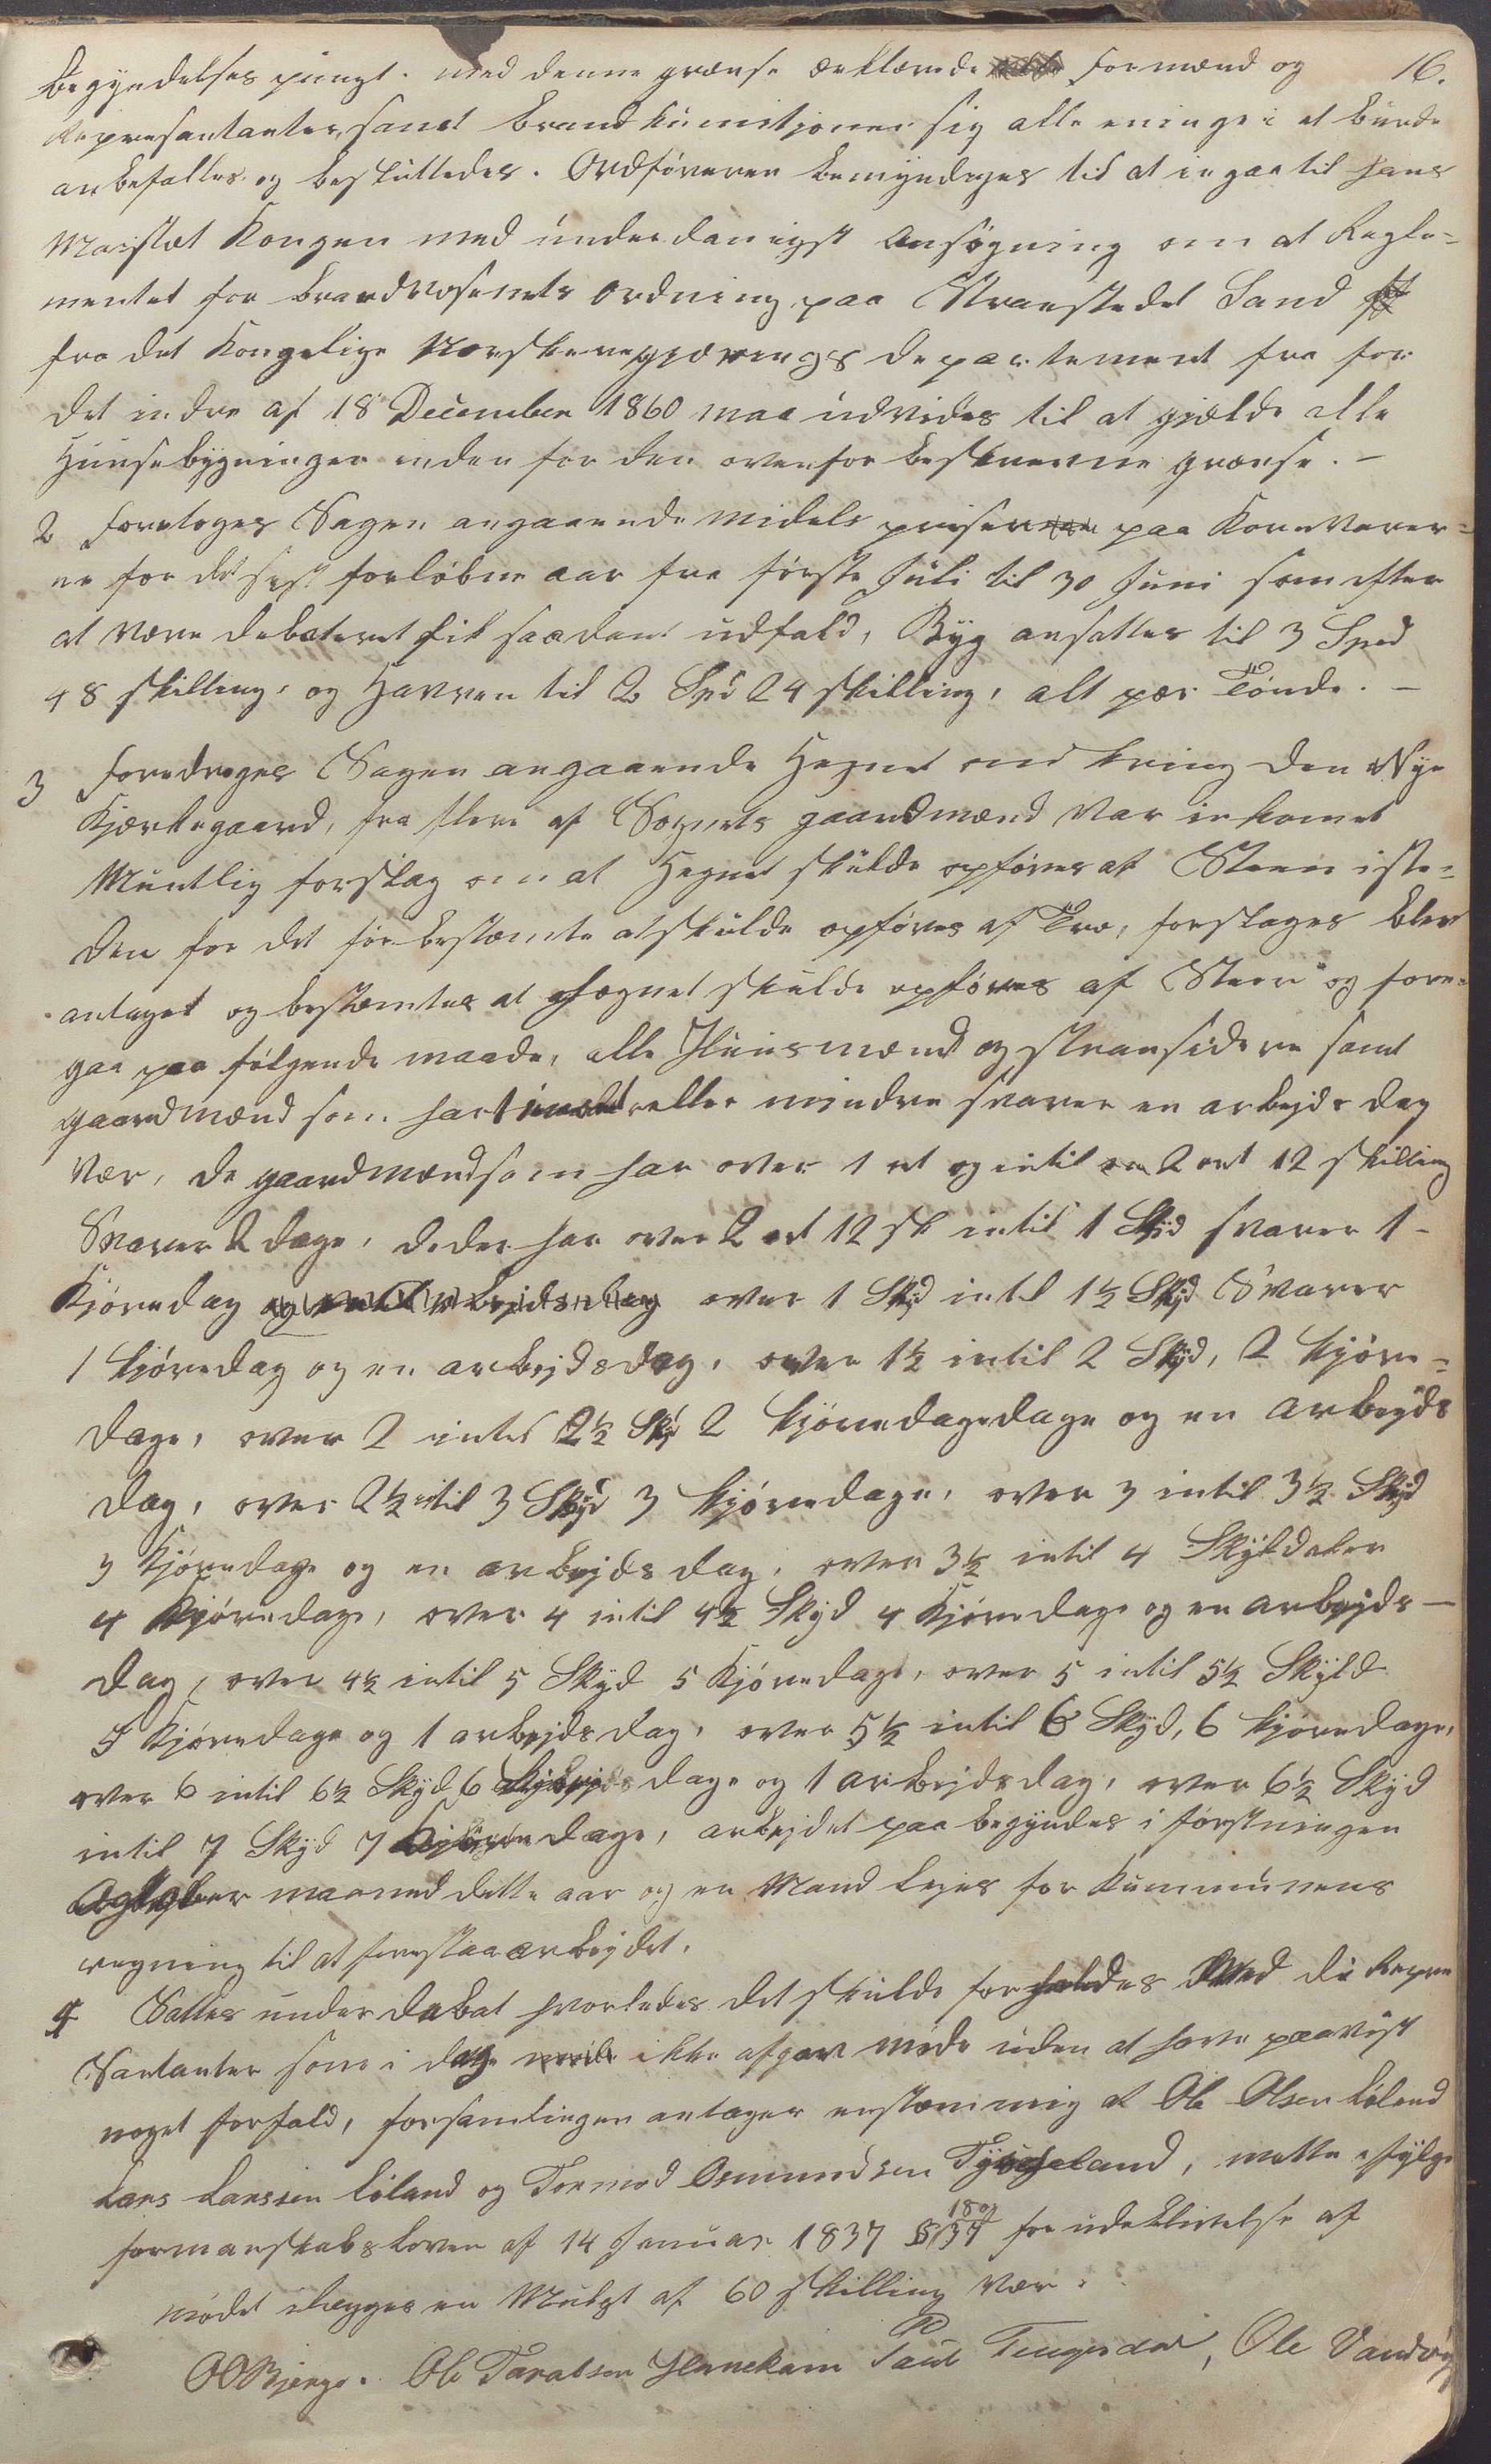 Begyndelses pungt. med denne grænse ærklærede formænd og 16.
Repræsentanter, samt brandkumitjonen sig alle eninge i at burde
anbefalles og besluttedes. Ordføreren bemyndiges til at ingaa til Hans
Maistæt Kongen med underdanigst Ansøgning om at Regle=
mentet for brandvæsenets ordning paa Stranstedet Sand
fra det Kongelige Norske regjærings departement fra for
det indre af 18 December 1860 maa udvides til at gjælde alle
Huusebygninger inden for den ovenfor beskrevne grænse. -
2 foretoges Sagen angaaende midels priser paa Kornvarer=
ne for det syst forløbne aar fra første Juli til 30 Juni som efter
at være debateret fik saadant udfald, Byg ansattes til 3 Spd
48 skilling, og Havren til 2 Spd 24 skilling, alt pær Tønde. -
3 foredroges Sagen angaaende Hegnet om kring den Nye
Kjærkegaard, fra flere af Sognets gaardmænd var inkomet
Muntlig forslag om at Hegnet skulde opføres af Steen iste=
den for det før bestæmte at skulde opføres af Træ, forslages blev
antaget og bestæmtes at Hægnet skulde opføres af Steen og fore=
gaa paa følgende maade, alle Huusmænd og stransidere samt
gaardmænd som har eller mindre svarer en arbejds dag
vær, de gaardmænd som har over 1 ort og intil 2 ort 12 skilling
Svarer 2 dage, de der har over 2 ort 12 sk intil 1 Skyd svarer 1 -
Kjøredag og en arbejdsdag over 1 Skyd intil 1½ Skyd Svarer
1 kjøredag og en arbejdsdag, over 1½ intil 2 Skyd, 2 kjøre=
dage, over 2 intil 2½ Sky 2 kjøredagedage og en arbejds
dag, over 2½ intil 3 Skyd 3 kjøredage, over 3 intil 3½ Skyd
3 Kjøredage og en arbejds dag, over 3½ intil 4 Skyldaler
4 Kjøredage, over 4 intil 4½ Skyd 4 Kjøredage og en arbejds -
dag, over 4½ intil 5 Skyd 5 Kjøredage, over 5 intil 5½ Skyld
5 Kjøredage og 1 arbejdsdag, over 5½ intil 6 Skyd, 6 kjøredage,
over 6 intil 6½ Skyd 6 dage og 1 arbejdsdag, over 6½ Skyd
intil 7 Skyd 7 Kjøre dage, arbejdet paa begyndes i førstningen
Ogtober maaned dette aar og en Mand lejes for Kummunens
regning til at forestaa arbejdet.
4 Sattes under debat hvorledes det skulde forholdes Med de Repræ
Santanter som i dag ikke afgav møde uden at have paavist
noget forfald, forsamlingen antager enstæmmig at Ole Olsen Løland
Lars Larssen Løland og Tormod Osmundsen Tysseland, matte efylge
formanskabsloven af 14 Januar 1837 § 18 og 34 for udeblivelse af
mødet ilegges en Mulgt af 60 skilling vær.
OO Bjerge. Ole Taralsen Hannekam Paul Tengesdal, Ole Vandvig